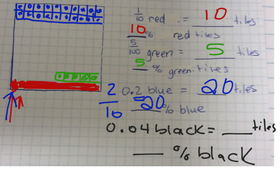 1/10 red = 10 tiles
10% red tiles
5/100 green = 5 tiles
__% green tiles
2/10 0.2 blue = 20 tiles
20% blue
0.04 black = __ tiles
__ % black